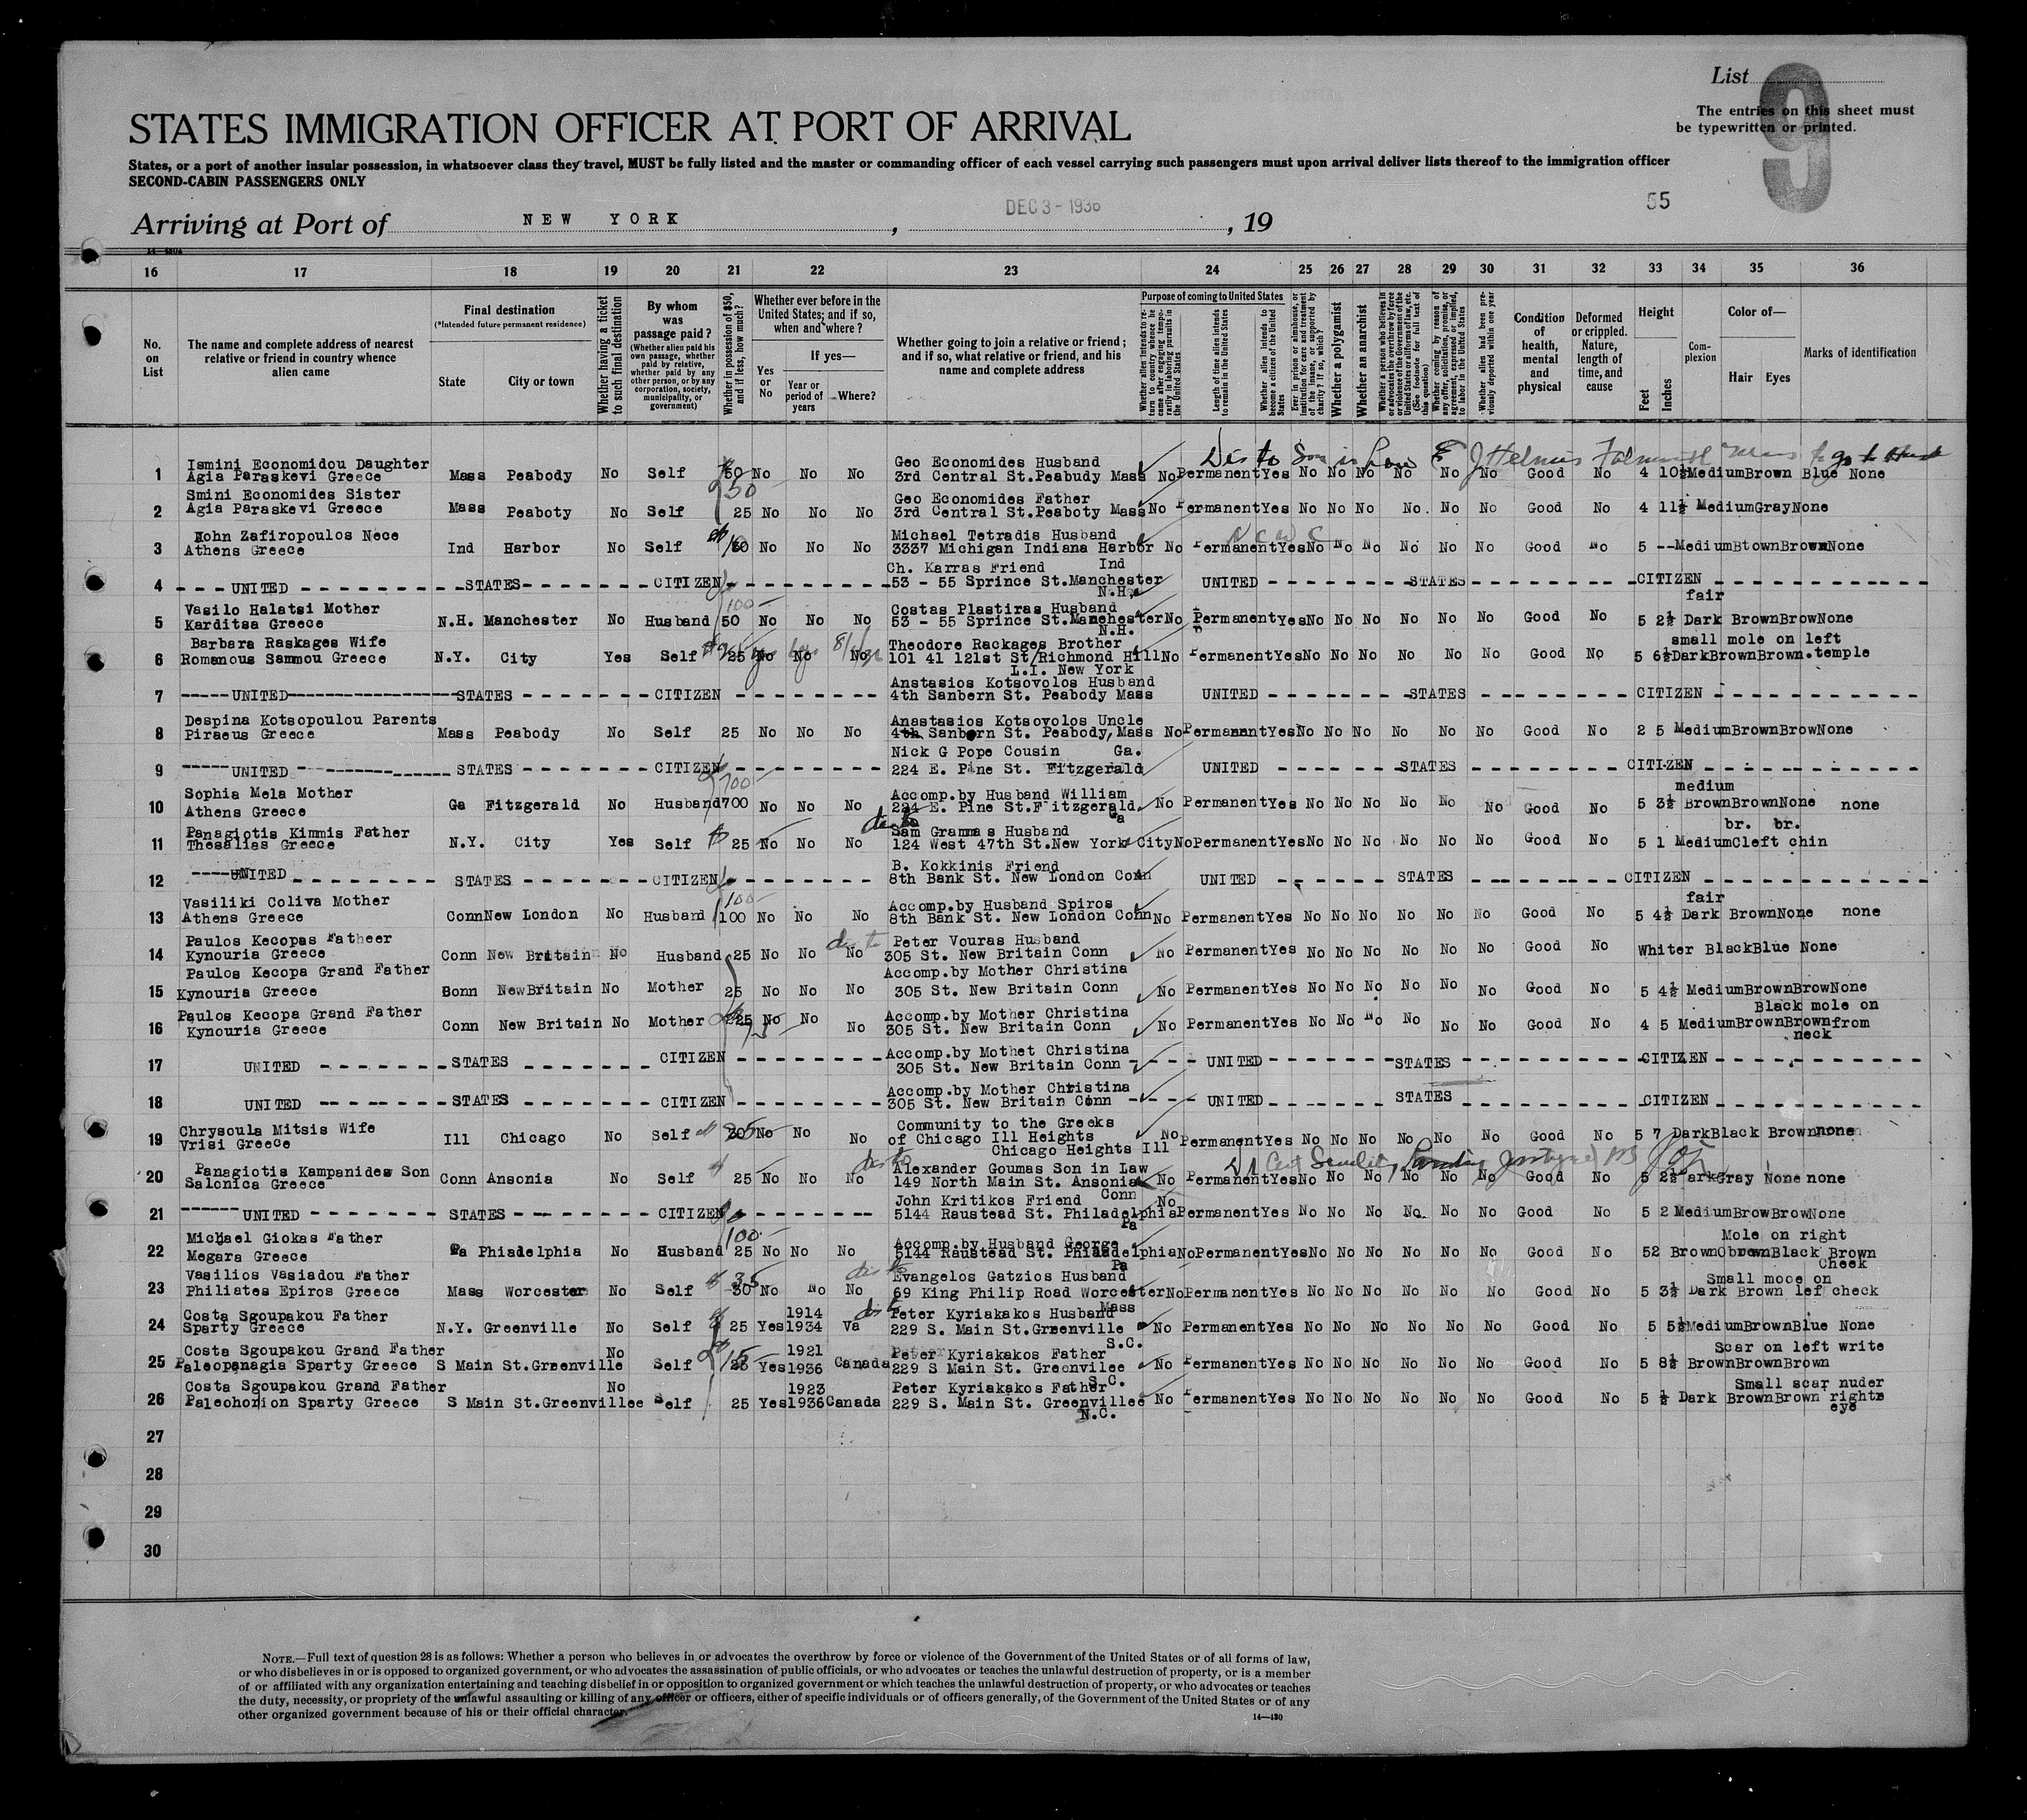 List
9
The entries on this sheet must
be typewritten or printed.
STATES IMMIGRATION OFFICER AT PORT OF ARRIVAL
States, or a port of another insular possession, in whatsoever class they travel, MUST be fully listed and the master or commanding officer of each vessel carrying such passengers must upon arrival deliver lists thereof to the immigration officer
SECOND-CABIN PASSENGERS ONLY
55
Arriving at Port of NEW YORK, DEC 3 - 1936, 19
16 17 18 19 20 21 22 23 24 25 26 27 28 29 30 31 32 33 34 35 36
No. on List
The name and complete address of nearest relative or friend in country whence alien came
Final destination
(*Intended future permanent residence)
State
City or town
Whether having a ticket to such final destination
By whom was passage paid?
(Whether alien paid his own passage, whether paid by relative, whether paid by any other person, or by any corporation, society, municipality, or government)
Whether in possession of $50, and if less, how much?
Whether ever before in the United States; and if so, when and where?
Yes or No
If yes—
Year or period of years
Where?
Whether going to join a relative or friend; and if so, what relative or friend, and his name and complete address
Purpose of coming to United States
Whether alien intends to return to country whence he came after engaging temporarily in laboring pursuits in the United States
Length of time alien intends to remain in the United States
Whether alien intends to become a citizen of the United States
Ever in prison or almshouse, or institution for care and treatment of the insane, or supported by charity? If so, which?
Whether a polygamist
Whether an anarchist
Whether a person who believes in or advocates the overthrow by force or violence of the Government of the United States or all forms of law, etc. (See footnote for full text of this question)
Whether coming by reason of any offer, solicitation, promise, or agreement, expressed or implied, to labor in the United States
Whether alien had been previously deported within one year
Condition of health, mental and physical
Deformed or crippled. Nature, length of time, and cause
Height
Feet
Inches
Complexion
Color of—
Hair
Eyes
Marks of identification
Dis to Son in Law
Ismini Economidou Daughter Geo Economides Husband
1 Agia Paraskevi Greece Mass Peabody No Self 50 No No No 3rd Central St.Peabudy Mass No Permanent Yes No No No No No No Good No 4 10½ Medium Brown Blue None
Smini Economides Sister 50 Geo Economides Father
2 Agia Paraskevi Greece Mass Peaboty No Self 25 No No No 3rd Central St.Peaboty Mass No Permanent Yes No No No No. No No Good No 4 11½ Medium Gray None
John Zafiropoulos Nece Michael Tetradis Husband N C W C
3 Athens Greece Ind Harbor No Self No No No 3337 Michigan Indiana Harbor No Permanent Yes No No No No No No Good No 5 -- Medium Btown Brown None
Ch. Karras Friend Ind
4 ---- UNITED -------- STATES -------- CITIZEN -------- 53 - 55 Sprince St.Manchester UNITED -------- STATES -------- CITIZEN --------
N.H.
Vasilo Halatsi Mother 100- Costas Plastiras Husband fair
5 Karditsa Greece N.H. Manchester No Husband 50 No No No 53 - 55 Sprince St.Manehester No Permanent Yes No No No No No No Good No 5 2½ Dark Brown Brow None
N.H.
Barbara Raskages Wife Theodore Rackages Brother small mole on left
6 Romanous Sammou Greece N.Y. City Yes Self 25 No No No 101 41 121st St/Richmond Hill No Permanent Yes No No No No No No Good No 5 6½ Dark Brown Brown. temple
L.I. New York
Anstasios Kotsovolos Husband
7 -----UNITED-------- STATES -------- CITIZEN -------- 4th Sanbern St. Peabody Mass UNITED -------- STATES -------- CITIZEN --------
Despina Kotsopoulou Parents Anastasios Kotsovolos Uncle
8 Piraeus Greece Mass Peabody No Self 25 No No No 4th Sanborn St. Peabody, Mass No Permanent Yes No No No No No No Good No 2 5 Medium Brown Brow None
Nick G Pope Cousin Ga.
9 -----UNITED -------- STATES -------- CITIZEN -------- 224 E. Pine St. Fitzgerald UNITED -------- STATES -------- CITIZEN --------
Sophia Mela Mother 700- Accomp.by Husband William medium
10 Athens Greece Ga Fitzgerald No Husband 700 No No No 224 E. Pine St.Fitzgerald. No Permanent Yes No No No No No No Good No 5 3½ Brown Brown None none
Ga
Panagiotis Kimmis Father Sam Gramma s Husband br. br.
11 Thesalias Greece N.Y. City Yes Self 25 No No No 124 West 47th St.New York City No Permanent Yes No No No No No No Good No 5 1 Medium Cleft chin
B. Kokkinis Friend
12 ----UNITED -------- STATES -------- CITIZEN -------- 8th Bank St. New London Conn UNITED -------- STATES -------- CITIZEN --------
Vasiliki Coliva Mother 100- Accomp.by Husband Spiros fair
13 Athens Greece Conn New London No Husband 100 No No No 8th Bank St. New London Conn No Permanent Yes No No No No No No Good No 5 4½ Dark Brown None none
Paulos Kecopas Fatheer Peter Vouras Husband
14 Kynouria Greece Conn New Britain No Husband 25 No No No 305 St. New Britain Conn No Permanent Yes No No No No No No Good No Whiter Black Blue None
Paulos Kecopa Grand Father Accomp.by Mother Christina
15 Kynouria Greece Bonn New Britain No Mother 25 No No No 305 St. New Britain Conn No Permanent Yes No No No No No No Good No 5 4½ Medium Brown Brow None
Paulos Kecopa Grand Father Accomp.by Mother Christina Black mole on
16 Kynouria Greece Conn New Britain No Mother 25 No No No 305 St. New Britain Conn No Permanent Yes No No No No No No Good No 4 5 Medium Brown Brown from
neck
Accomp.by Mothet Christina
17 UNITED -------- STATES -------- CITIZEN -------- 305 St. New Britain Conn UNITED -------- STATES -------- CITIZEN --------
Accomp.by Mother Christina
18 UNITED -------- STATES -------- CITIZEN -------- 305 St. New Britain Conn UNITED -------- STATES -------- CITIZEN --------
Chrysoula Mitsis Wife Community to the Greeks
19 Vrisi Greece Ill Chicago No Self No No No of Chicago Ill Heights No Permanent Yes No No No No No No Good No 5 7 Dark Black Brown none
Chicago Heights Ill
Panagiotis Kampanides Son Alexander Goumas Son in Law
20 Salonica Greece Conn Ansonia No Self 25 No No No 149 North Main St. Ansonia No Permanent Yes No No No No No No Good No 5 2½ ark Gray None none
John Kritikos Friend Conn No
21 ------UNITED -------- STATES -------- CITIZEN -------- 5144 Raustead St. Philadelphia Permanent Yes No No No No. No No Good No 5 2 Medium Brow Brow None
Pa
Michael Giokas Father 100- Accomp.by Husband George Mole on right
22 Megara Greece Pa Phiadelphia No Husband 25 No No No 5144 Raustead St. Philadelphia No Permanent Yes No No No No No No Good No 52 Brown Black Brown
Pa Cheek
Vasilios Vasiadou Father 35 Evangelos Gatzios Husband Small mooe on
23 Philiates Epiros Greece Mass Worcester No Self 30 No No No 69 King Philip Road Worcester No Permanent Yes No No No No No No Good No 5 3½ Dark Brown lef check
Mass
Costa Sgoupakou Father 1914 Peter Kyriakakos Husband
24 Sparty Greece N.Y. Greenville No Self 25 Yes 1934 Va 229 S. Main St.Grenville No Permanent Yes No No No No No No Good No 5 5½ Medium Brown Blue None
S.C.
Costa Sgoupakou Grand Father No 1921 Peter Kyriakakos Father Scar on left write
25 Paleopanagia Sparty Greece S Main St.Greenville Self Yes 1936 Canada 229 S Main St. Greenvilee No Permanent Yes No No No No No No Good No 5 8½ Brown Brown Brown
S.C.
Costa Sgoupakou Grand Father No 1923 Peter Kyriakakos Father Small scar nuder
26 Paleohonion Sparty Greece S Main St.Greenvillee Self 25 Yes 1936 Canada 229 S. Main St. Greenvillee No Permanent Yes No No No No No No Good No 5 ½ Dark Brown Brown rights
N.C. eye
27
28
29
30
NOTE.—Full text of question 28 is as follows: Whether a person who believes in or advocates the overthrow by force or violence of the Government of the United States or of all forms of law,
or who disbelieves in or is opposed to organized government, or who advocates the assassination of public officials, or who advocates or teaches the unlawful destruction of property, or is a member
of or affiliated with any organization entertaining and teaching disbelief in or opposition to organized government or which teaches the unlawful destruction of property, or who advocates or teaches
the duty, necessity, or propriety of the unlawful assaulting or killing of any officer or officers, either of specific individuals or of officers generally, of the Government of the United States or of any
other organized government because of his or their official character.
14—430